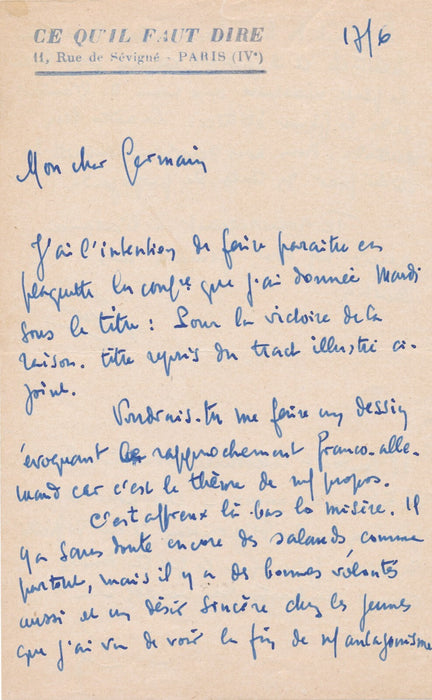 CE QU'IL FAUT DIRE
11, Rue de Sévigné - PARIS (IVe)
17/6
Mon cher Germain
J'ai l'intention de faire paraître en
plaquette la confce que j'ai donnée Mardi
sous le titre : Pour la victoire de la
raison. titre repris du tract illustré ci-
joint.
Voudrais-tu me faire un dessin
évoquant le rapprochement franco-alle-
mand car c'est le thème de mes propos.
C'est affreux là-bas la misère. Il
y a sans doute encore des salauds comme
partout, mais il y a de bonnes volontés
aussi et un désir sincère chez les jeunes
que j'ai vu de voir la fin de antagonisme